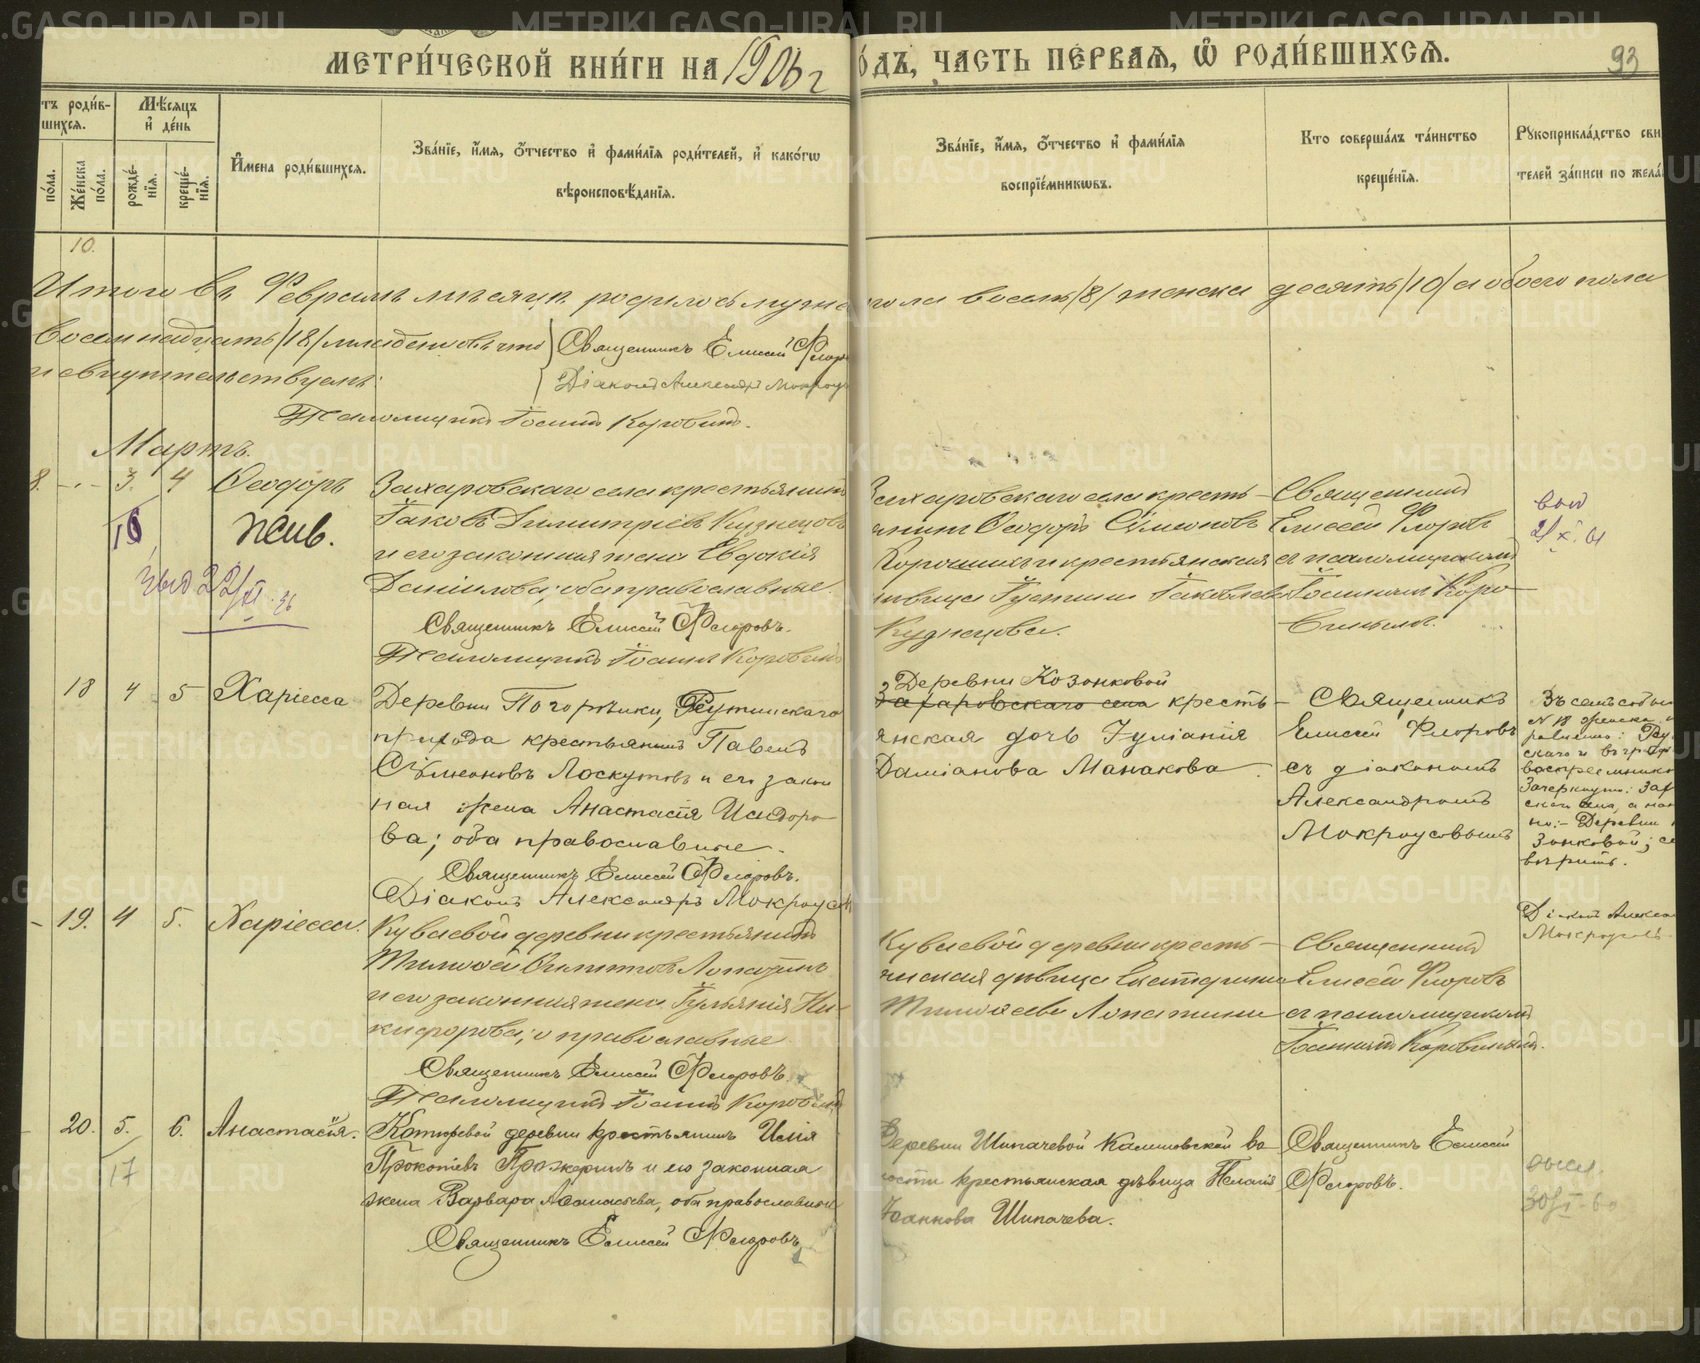 МЕТРИ́ЧЕСКОЙ КНИ́ГИ НА 1906 г
О́ДЪ, ЧАСТЬ ПЕ́РВАѦ, Ѿ РОДИ́ВШИХСѦ. 93
тъ роди́в-
шихсѧ.
Мѣ́сѧцъ
и҆ де́нь
по́ла.
Же́нска
по́ла.
рожде́-
нїѧ.
креще́-
нїѧ.
И҆мена роди́вшихсѧ.
Зва́нїе, и҆́мѧ, ѻ҆́тчество и҆ фами́лїѧ роди́телей, и҆ како́гѡ
вѣроисповѣ́данїѧ.
Зва́нїе, и҆́мѧ, ѻ҆́тчество и҆ фами́лїѧ
воспрїе́мникѡвъ.
Кто соверша́лъ та́инство
креще́нїѧ.
Рꙋкоприкла́дство сви
телей за́писи по жела
10.
Итого въ Февралѣ мѣсяцѣ родилось мужескаго пола восемь /8/ женска десять /10/ а обоего пола
восемнадцать /18/ младенцевъ что
и свидѣтельствуемъ:
Священникъ Елисей Флоров
Діаконъ Александръ Мокроус
Псаломщикъ Іоаннъ Коровинъ.
Мартъ.
8. - - 3. 4 Ѳеодоръ
Захаровскаго села крестьянинъ
Іаковъ Димитріевъ Кузнецовъ
и его законная жена Евдокія
Даніилова; оба православные.
Священникъ Елисей Флоровъ.
Псаломщикъ Іоаннъ Коровинъ
16
жив.
22/XI. 36
Захаровскаго села кресть-
янинъ Ѳеодоръ Сѵмеоновъ
и крестьянская
дѣвица Іустина Іаковлева
Кузнецова.
Священникъ
Елисей Флоровъ
съ псаломщикомъ
Іоанномъ Коро-
винымъ.
18 4 5 Харіесса
Деревни Погорѣлки, Реутинскаго
прихода крестьянинъ Павелъ
Сѵмеоновъ Лоскутовъ и его закон
ная жена Анастасія Исидоро-
ва; оба православные.
Священникъ Елисей Флоровъ.
Діаконъ Александръ Мокроусов
Деревни Козонковой
Захаровскаго села кресть-
янская дочь Іуліанія
Даміанова Манакова.
Священникъ
Елисей Флоровъ
съ діакономъ
Александромъ
Мокроусовымъ
Въ семъ
N 18 женска
скаго и въ граф
воспріемник
Зачеркнуто: Зах
села, а
но:- Деревни
зонковой;
вѣрить.
Діаконъ Алекса
Мокроусовъ.
- 19. 4 5. Харіесса.
Куваевой деревни крестьянинъ
Тимоѳей Филипповъ Лопатинъ
и его законная жена Іуліанія Ни-
кифорова; православные
Священникъ Елисей Флоровъ.
Псаломщикъ Іоаннъ Коровинъ
Куваевой деревни кресть-
янская дѣвица Екатерина
Тимоѳеева Лопатина
Священникъ
Елисей Флоровъ
съ псаломщикомъ
Іоанномъ Коровинымъ.
- 20. 5. 6. Анастасія.
17
деревни крестьянинъ Илія
Прокопіевъ Прожеринъ и его законная
жена Варвара Аѳанасьева, оба православные
Священникъ Елисей Флоровъ
Деревни Шипачевой Калиновской во
лости крестьянская дѣвица Пелагія
Іоаннова Шипачева.
Священникъ Елисей
Флоровъ.